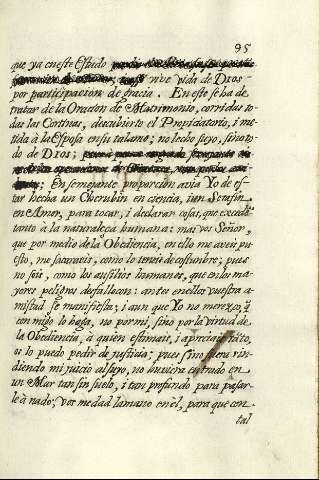 95
que ya en este Estado
vive vida de Dios
por participacion de gracia. En este se ha de
tratar de la Oracion de Matrimonio, corridas to-
das las Cortinas, descubierto el Propiciatorio, i me-
tida à la Esposa en su talamo; no lecho suyo, sino to-
do de Dios;
En semejante proporcion avia Yo de es-
tar hecha un Cherubin en ciencia, i un Serafin
en Amor, para tocar, i declarar cosas, que exceden
tanto à la naturaleça humana: mas vos Señor,
que por medio de la Obediencia, en ello me aveis pu-
esto, me sacareis, como lo teneis de costumbre; pues
no sois, como los ausilios humanos, que en los ma-
yores peligros desfallecen: antes en ellos vuestra a-
mistad se manifiesta; i aun que Yo no mereçca, q̃
con migo lo hagas, no por mi, sino por la virtud de
la Obediencia, à quien estimais, i apreciais tãto,
os lo puedo pedir de justicia; pues sino fuera rin-
diendo mi juicio al suyo, no huviera entrado en
un Mar tan sin suelo, i tan profundo para pasar-
le à nado; vos me dad la mano en èl, para que con
tal